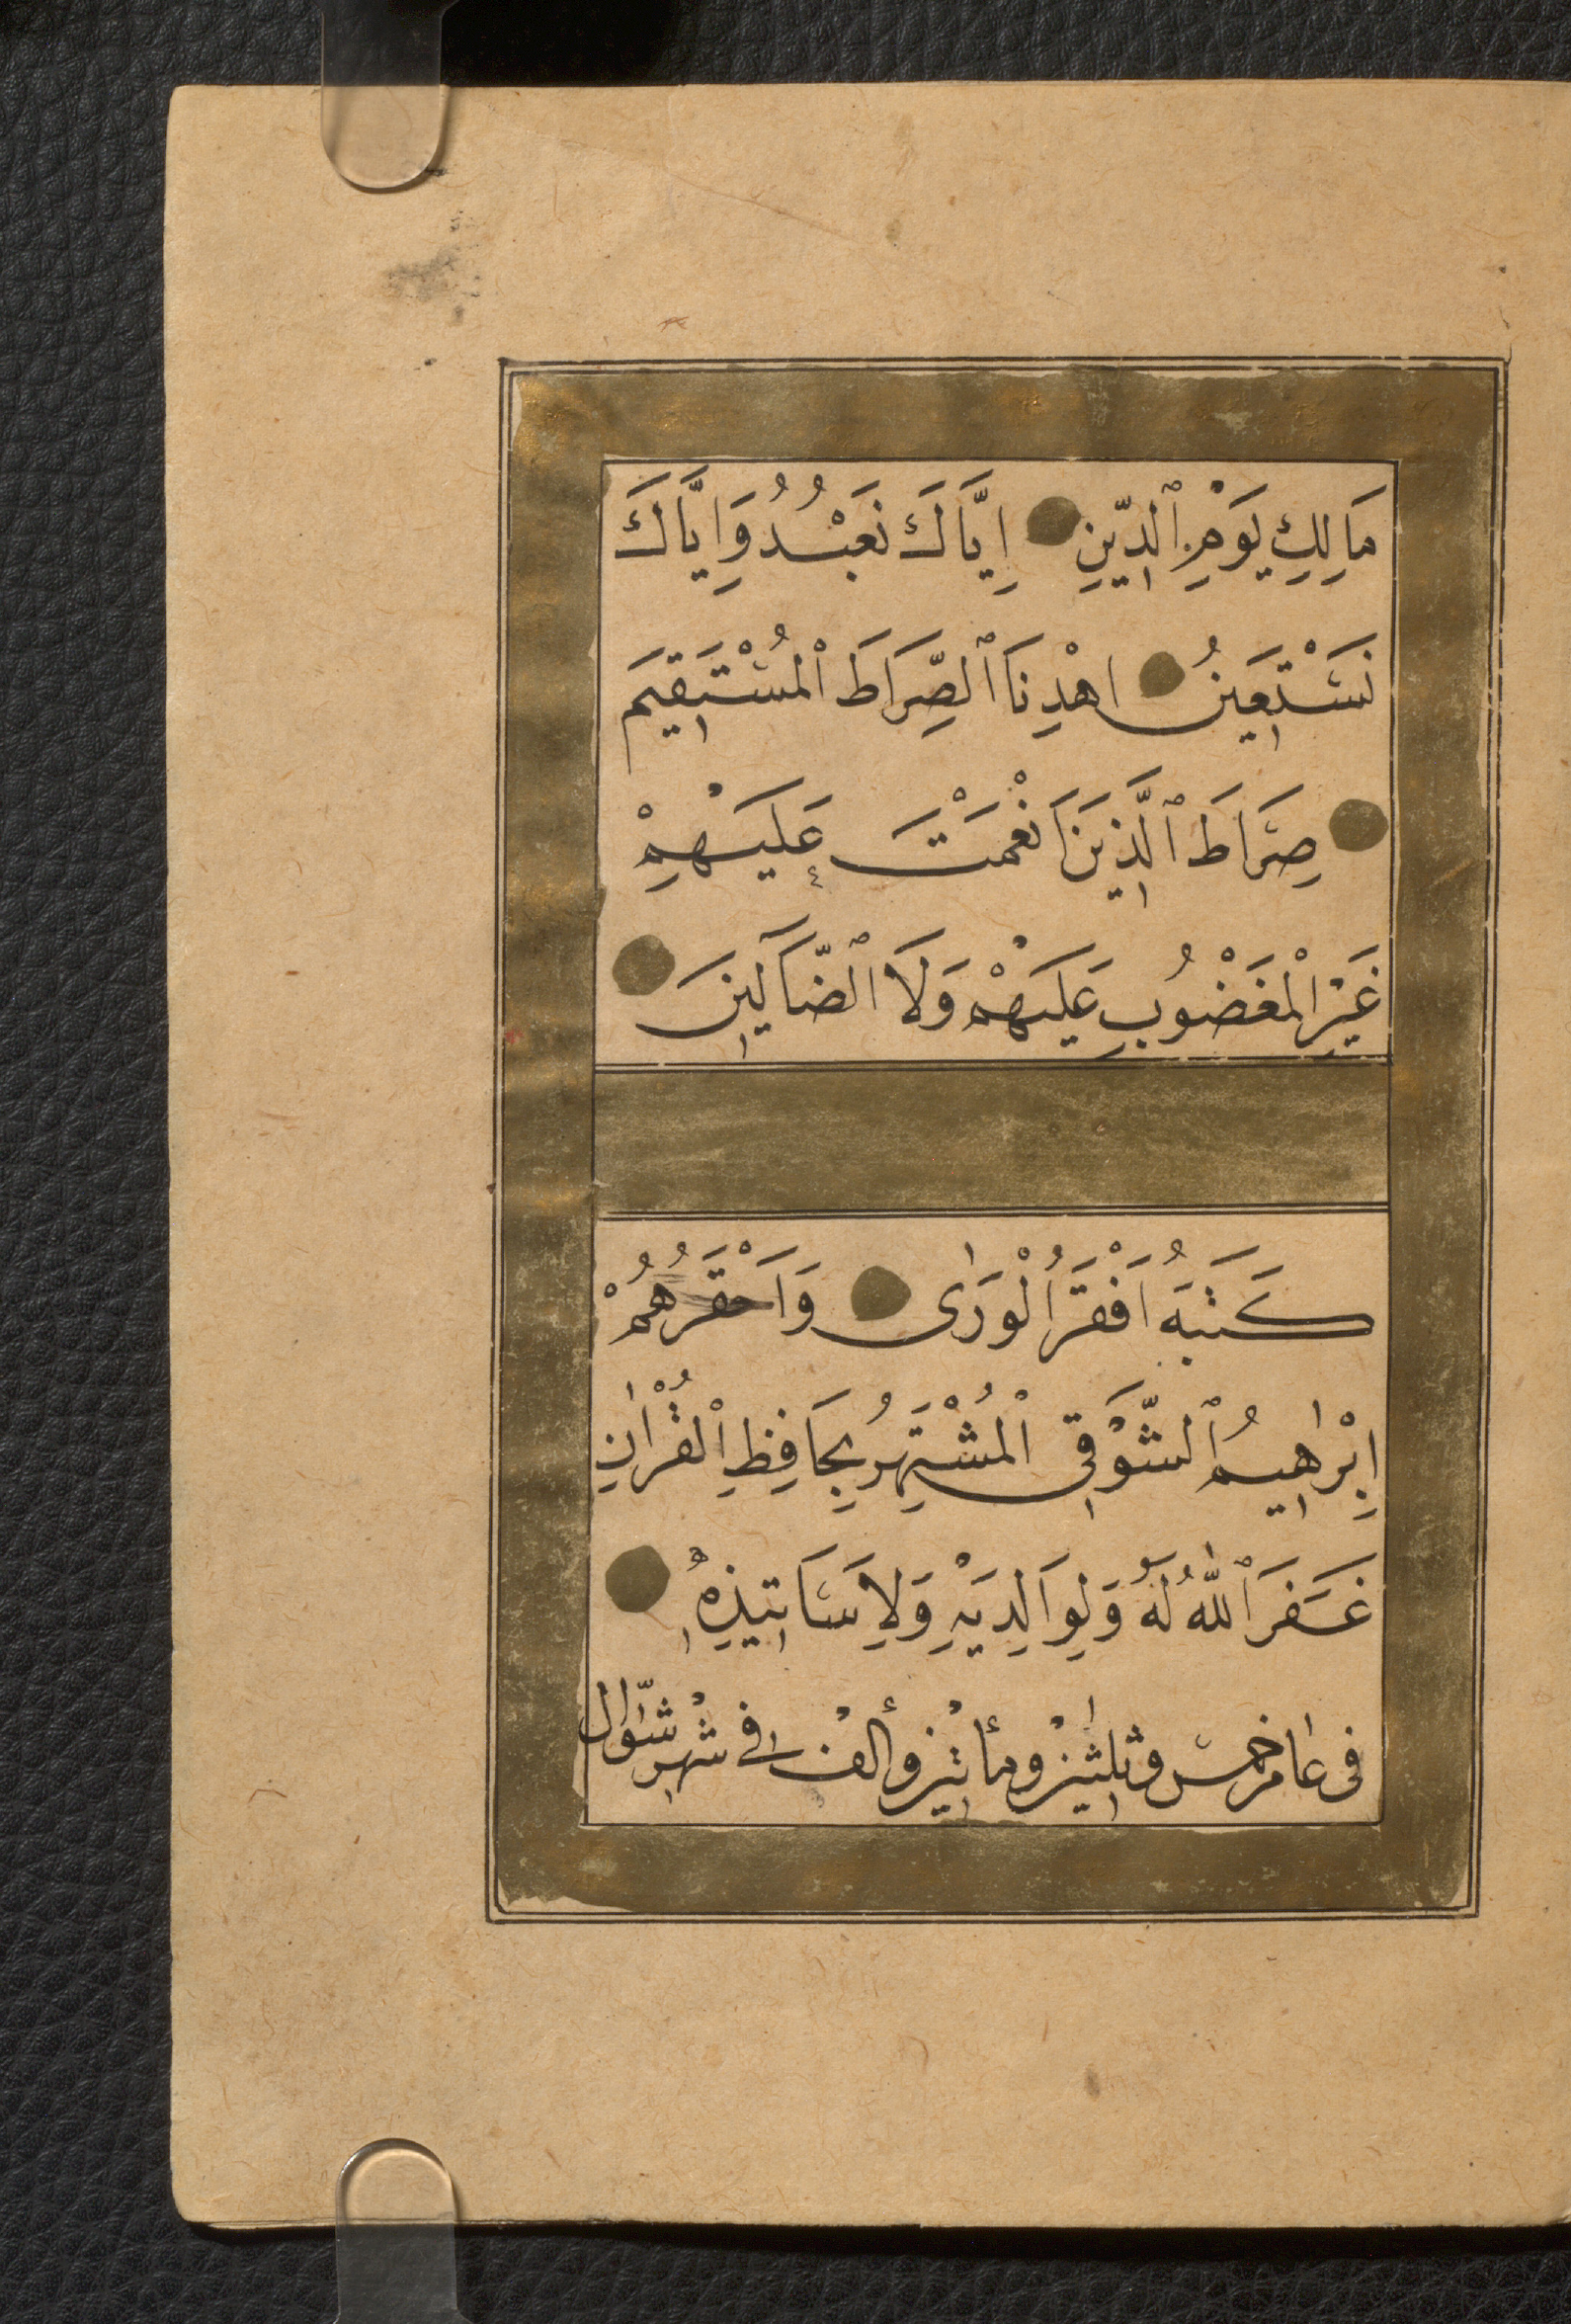 مَالِكِ يَوْمِ ٱلدِّينِ اِيَّاكَ نَعْبُدُ وَاِيَّاكَ
نَسْتَعِينُ اهْدِنَا ٱلصِّرَاطَ ٱلْمُسْتَقِيمَ
صِرَاطَ ٱلَّذِينَ اَنْعَمْتَ عَلَيْهِمْ
غَيْرِ الْمَغْضُوبِ عَلَيْهِمْ وَلَا ٱلضَّآلِّينَ
كَتَبَهُ اَفْقَرُ الْوَرٰى وَاَحْقَرُهُمْ
اِبْرٰاهِيمُ ٱلشَّوْقِى ٱلْمُشْتَهِرُ بِحَافِظِ ٱلْقُرْاٰنِ
غَفَرَ ٱللّٰهُ لَهُ وَلِوَالِدَيْهِ وَلِاَسَاتِيذِهِ
فى عام خمس وثلثين ومأتين وألف فى شهر شوّال